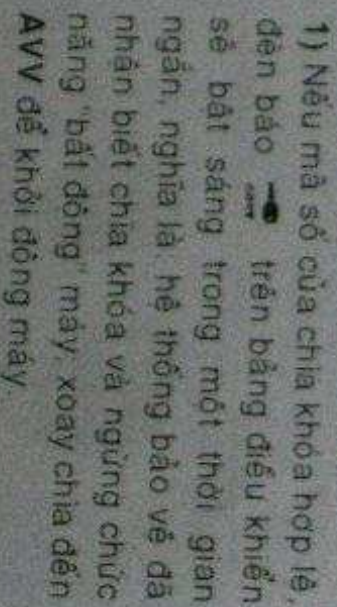 1) Nếu mã số của chìa khóa hợp lệ,
đèn báo trên bảng điều khiển
sẽ bật sáng trong một thời gian
ngắn, nghĩa là: hệ thống bảo vệ đã
nhận biết chìa khóa và ngừng chức
năng "bất động" máy, xoay chìa đến
AVV để khởi động máy.